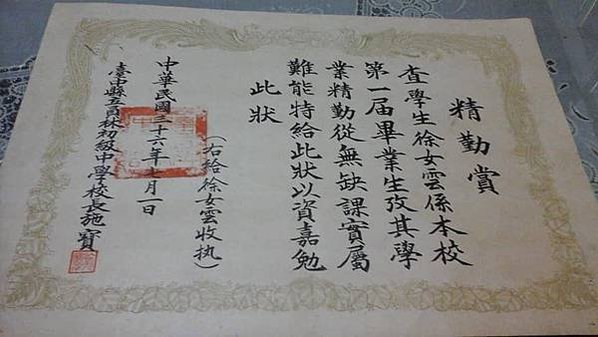 精勤賞
查學生徐女雲係本校
第一屆畢業生攷其學
業精勤從無缺課實屬
難能特給此狀以資嘉勉
此狀
(右給徐女雲收执)
中華民國三十六年七月一日
臺中縣立員林初級中學校長施寶